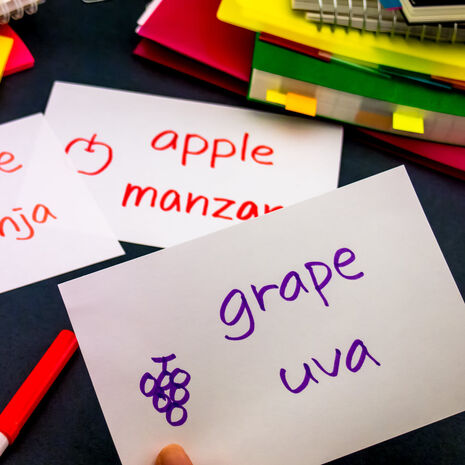 e
nja
apple
manzan
grape
uva